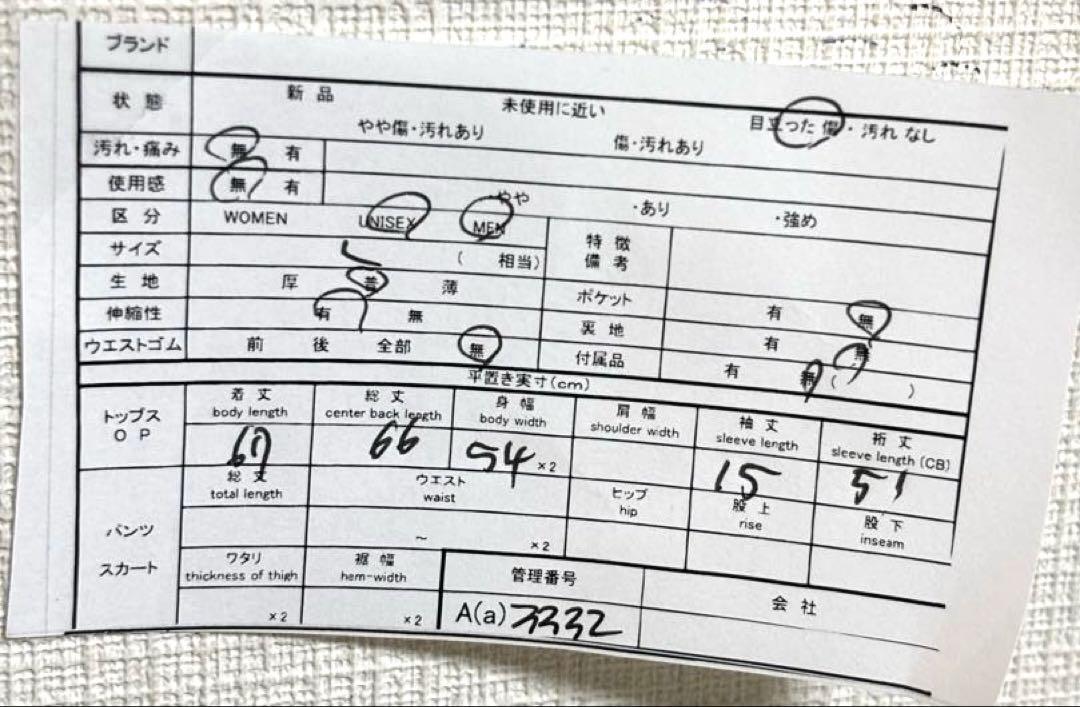 ブランド
状態 新品 未使用に近い 目立った傷・汚れなし
やや傷・汚れあり 傷・汚れあり
汚れ・痛み 無 有
使用感 無 有 ・やや ・あり ・強め
区分 WOMEN UNISEX MEN
特徴
備考
サイズ L ( 相当)
生地 厚 普 薄
ポケット 有 無
伸縮性 有 無
裏地 有 無
ウエストゴム 前 後 全部 無
付属品 有 無 ( )
平置き実寸(cm)
トップス
OP
着丈 総丈 身幅 肩幅 袖丈 裄丈
body length center back length body width shoulder width sleeve length sleeve length (CB)
66 54 ×2 15 51
パンツ
スカート
総丈 ウエスト ヒップ 股上 股下
total length waist hip rise inseam
~ ×2
ワタリ 裾幅
thickness of thigh hem-width
×2 ×2
管理番号 会社
A(a) 3332